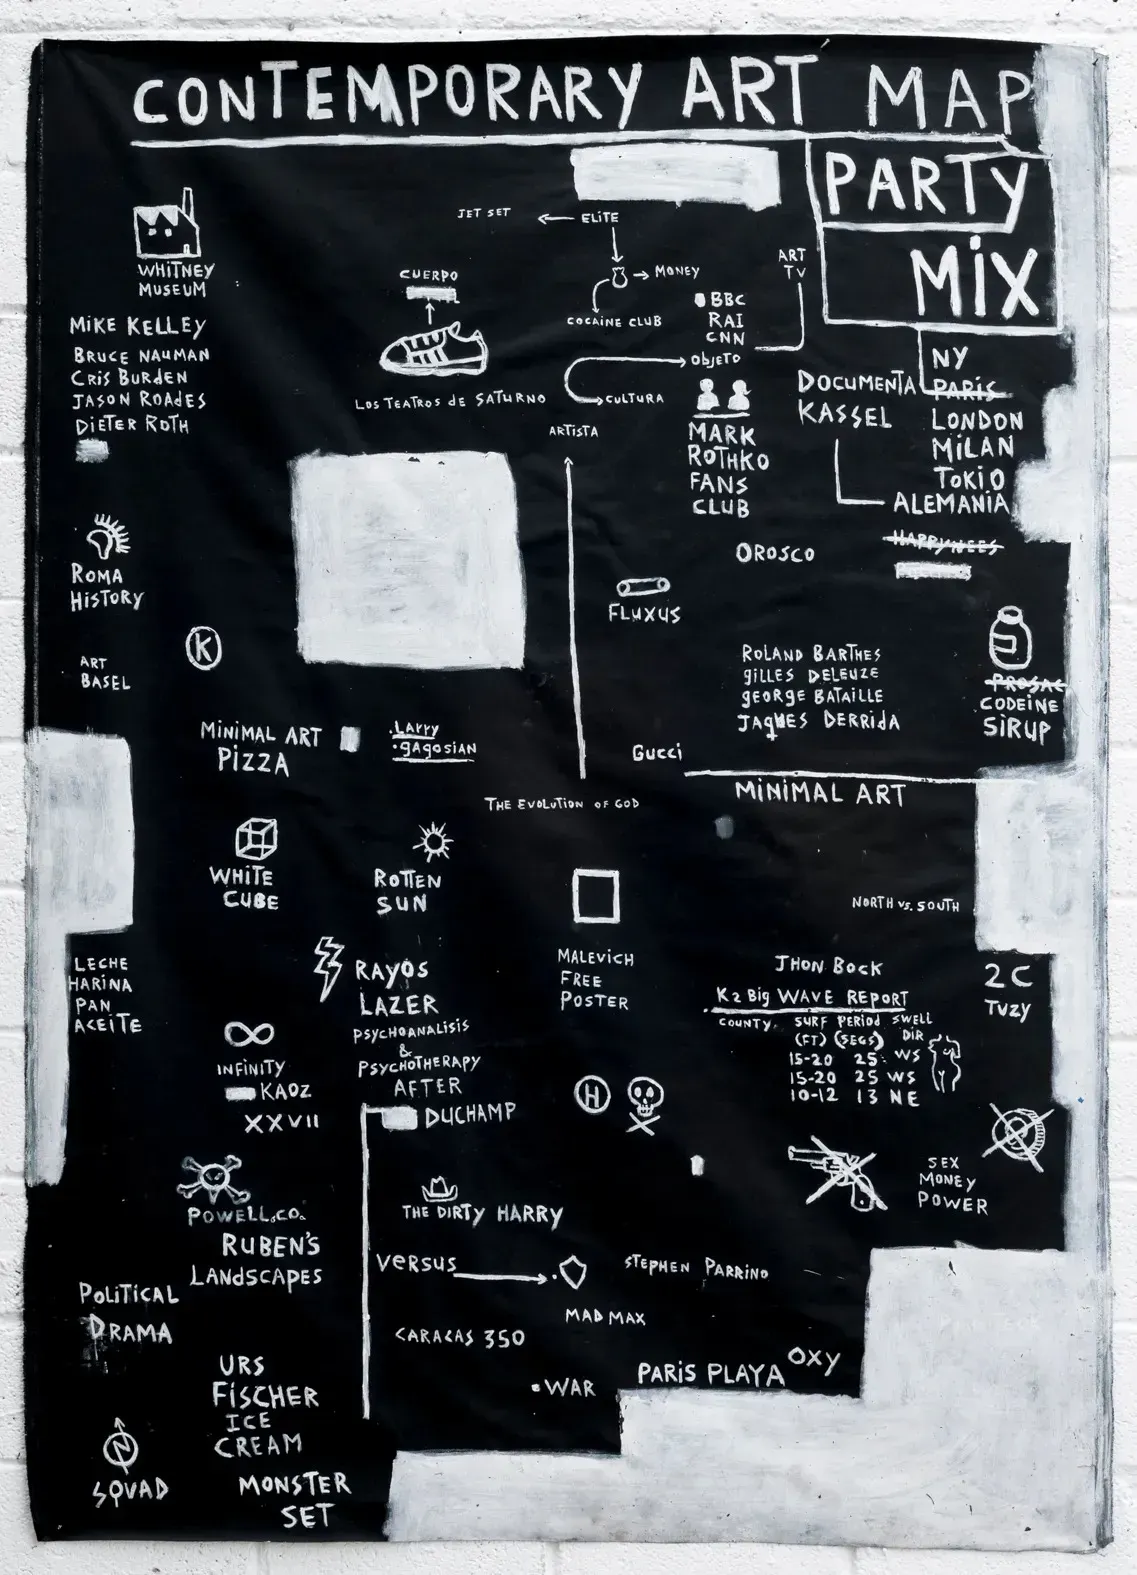 CONTEMPORARY ART MAP
PARTY
MIX
WHITNEY
MUSEUM
MIKE KELLEY
BRUCE NAUMAN
CRIS BURDEN
JASON ROADES
DIETER ROTH
ROMA
HISTORY
K
ART
BASEL
JET SET
ELITE
MONEY
COCAINE CLUB
CUERPO
LOS TEATROS de SATURNO
ART
TV
BBC
RAI
CNN
OBJETO
CULTURA
ARTISTA
MARK
ROTHKO
FANS
CLUB
DOCUMENTA
KASSEL
NY
PARIS
LONDON
MILAN
TOKIO
ALEMANIA
HAPPYNEES
OROSCO
FLUXUS
ROLAND BARTHES
gILLES DELEUZE
gEORGE BATAILLE
JAQUES DERRIDA
PROSAC
CODEINE
SIRUP
GUCCI
MINIMAL ART
MINIMAL ART
PIZZA
LARRY
GAGOSIAN
THE EVOLUTION OF GOD
WHITE
CUBE
ROTTEN
SUN
NORTH vs. SOUTH
LECHE
HARINA
PAN
ACEITE
RAYOS
LAZER
PSYCHOANALISIS
&
PSYCHOTHERAPY
AFTER
DUCHAMP
INFINITY
KAOZ
XXVII
MALEVICH
FREE
POSTER
JHON BOCK
K2 Big WAVE REPORT
COUNTY SURF PERIOD SWELL
(FT) (SEGS) DIR
15-20 25 WS
15-20 25 WS
10-12 13 NE
2C
TVZY
H
POWELL.CO.
RUBEN'S
LANDSCAPES
THE DIRTY HARRY
VERSUS
MAD MAX
STEPHEN PARRINO
SEX
MONEY
POWER
POLITICAL
DRAMA
CARACAS 350
WAR
PARIS PLAYA
OXY
URS
FISCHER
ICE
CREAM
N
SQUAD
MONSTER
SET